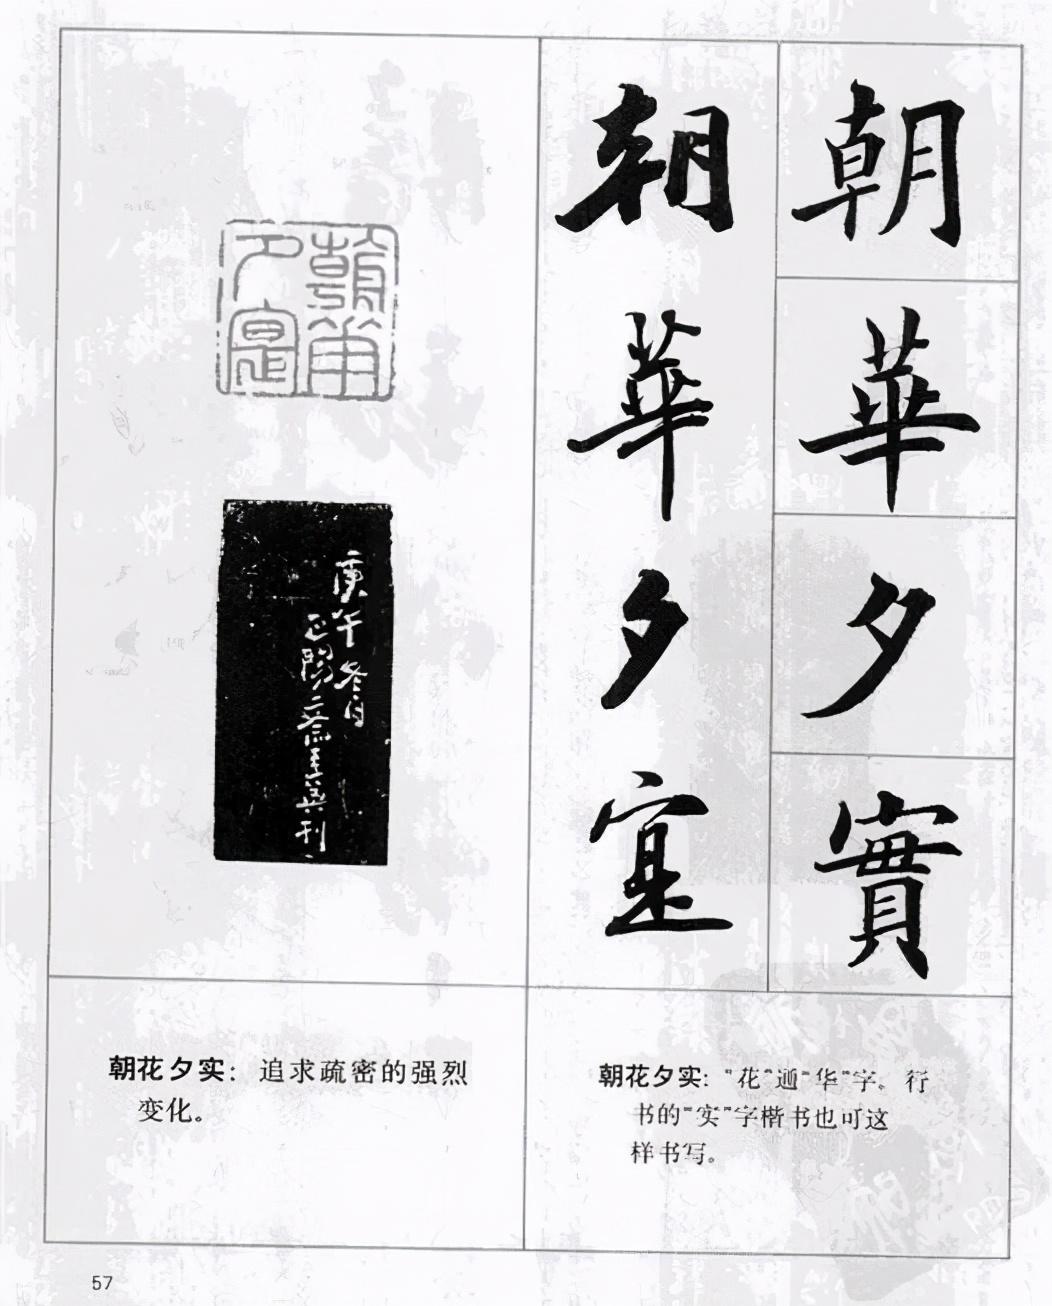 朝華夕實
朝華夕寔
朝華
夕寔
庚午冬月
正陽 刊
朝花夕实：追求疏密的强烈
变化。
朝花夕实："花"通"华"字。行
书的"实"字楷书也可这
样书写。
57